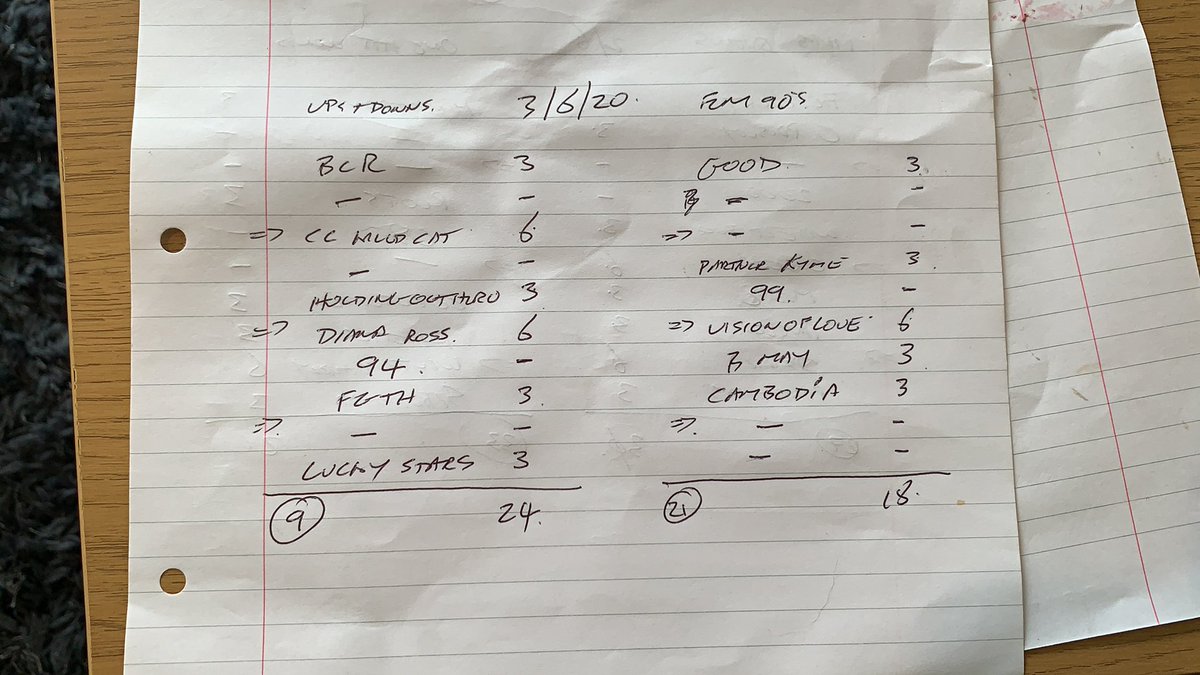 UPS + DOWNS. 3/6/20. FM 90'S
BCR 3 GOOD. 3.
— - - -
=> CC WILDCAT 6 => - -
— - PARTNER RYME 3.
HOLDING OUT THRO 3 99. -
=> DIANA ROSS. 6 => VISION OF LOVE 6
94. - MAY 3
FGTH 3. CAMBODIA 3
=>. — - =>. — -
LUCKY STARS 3 — -
9 24. 21 18.